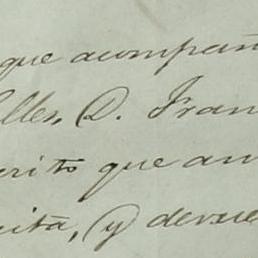 que acompañ
lles, D. Fran
erito que an
uita, y devue